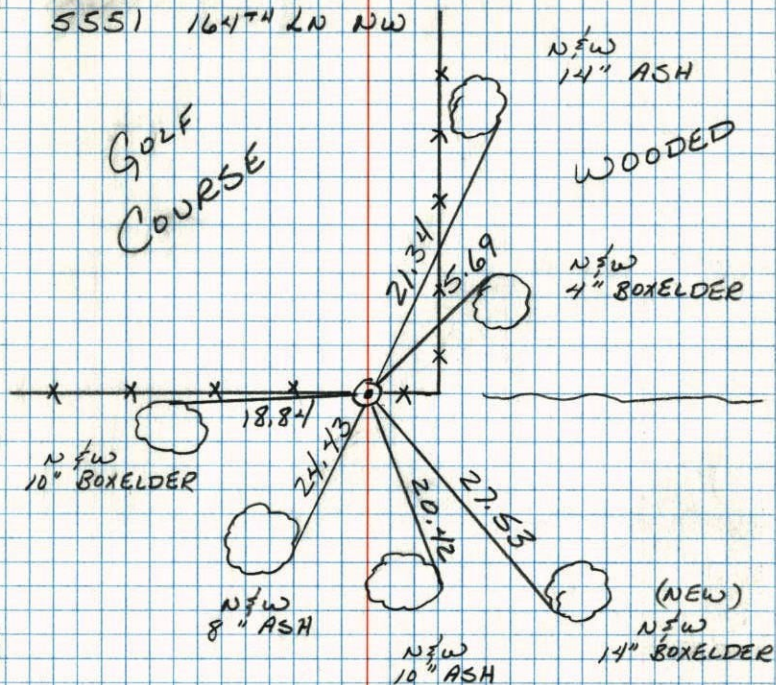 5551 164TH LN NW
N&W
14" ASH
GOLF
COURSE
WOODED
21.34
5.69
N&W
4" BOXELDER
18.84
N&W
10" BOXELDER
24.43
20.42
27.53
N&W
8" ASH
N&W
10" ASH
(NEW)
N&W
14" BOXELDER